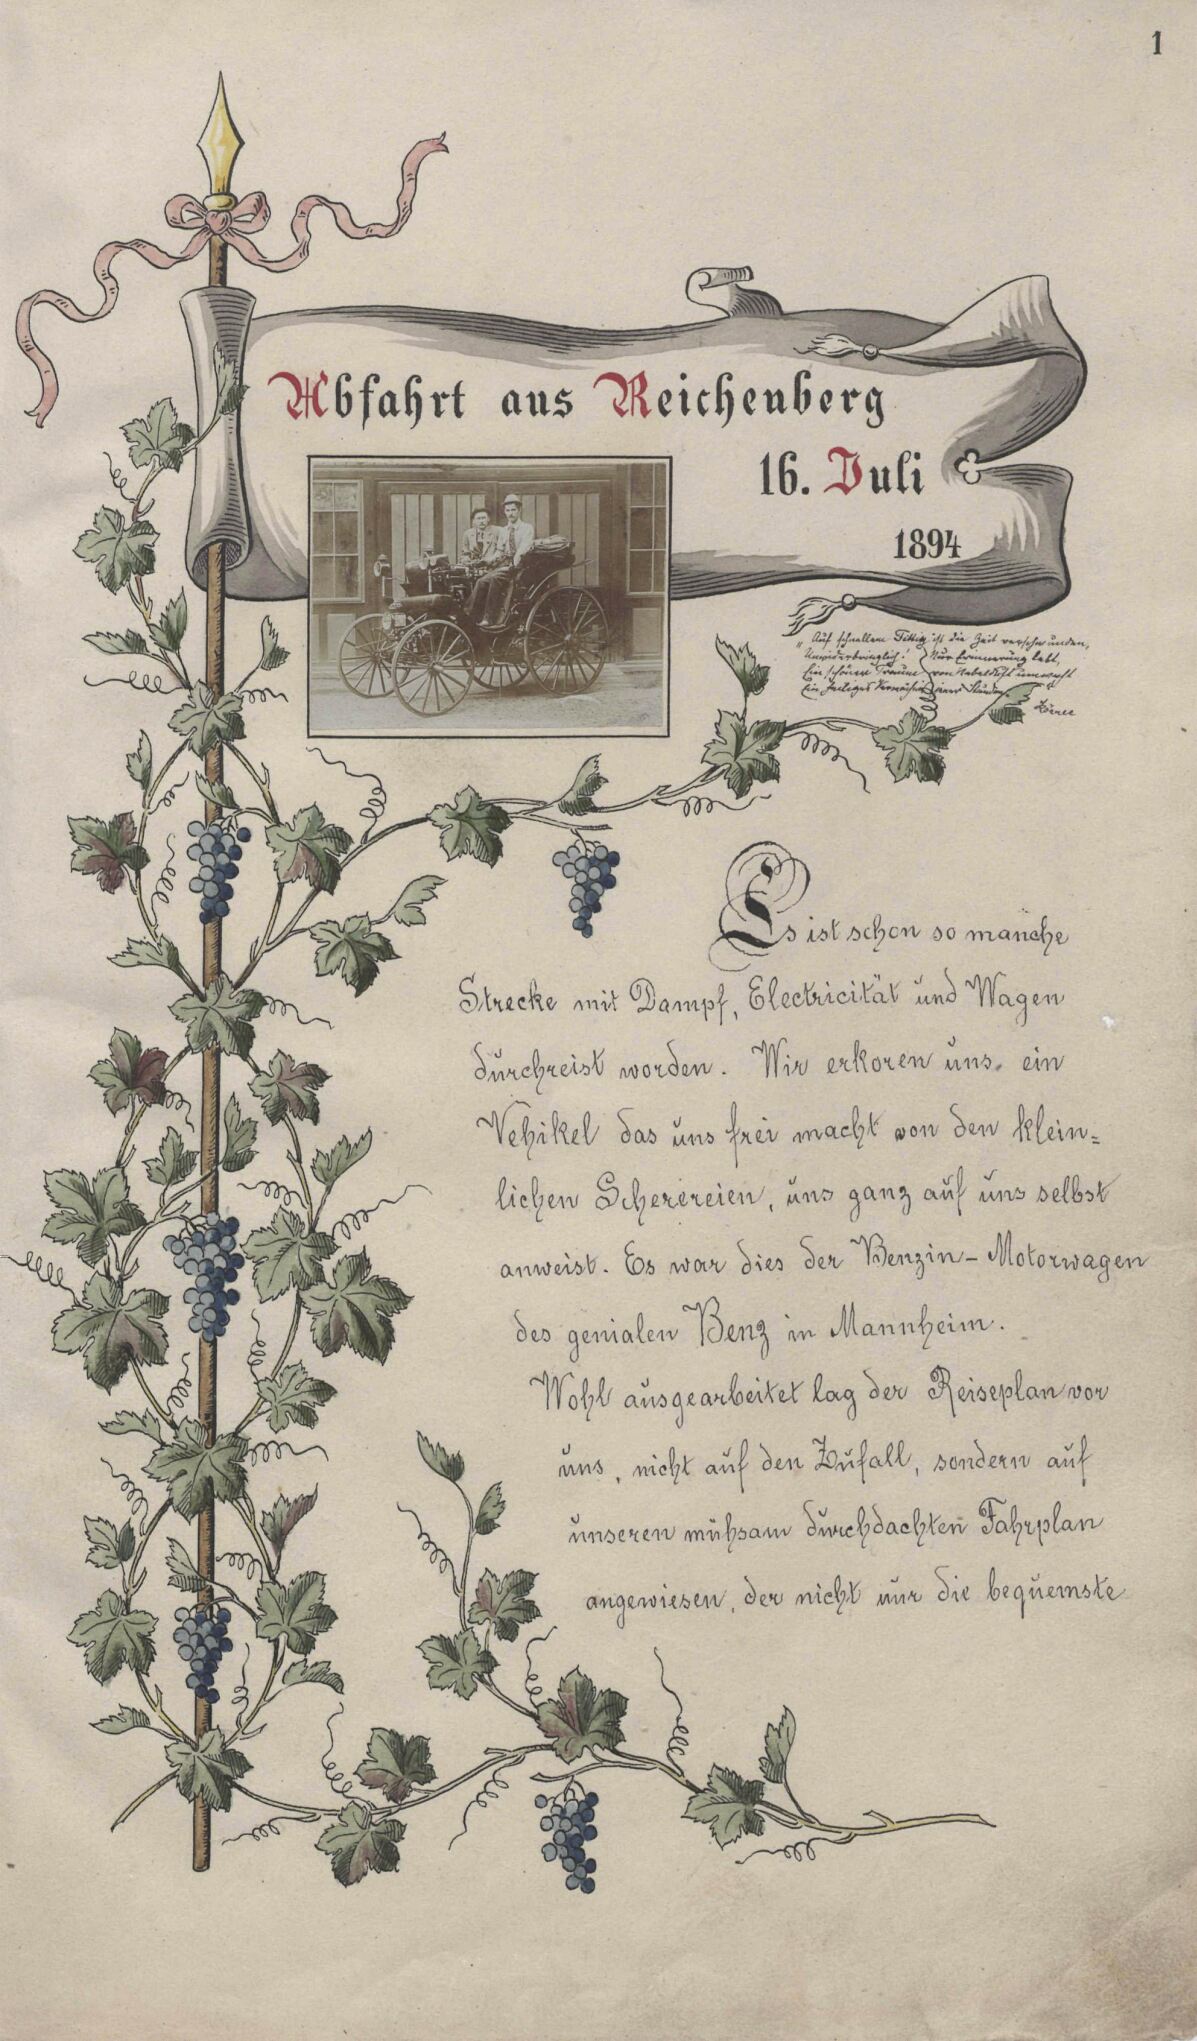 1
Abfahrt aus Reichenberg
16. Juli
1894
„Auf schnellem Fittig ist die Zeit verschwunden,
Unwiderbringlich! Nur Erinnerung lebt,
Ein schöner Traum von Nebelduft umwebt
Ein heiliges Vermächtnis jener Stunden
Es ist schon so manche
Strecke mit Dampf, Electricität und Wagen
durchreist worden. Wir erkoren uns, ein
Vehikel das uns frei macht von den klein=
lichen Scherereien, uns ganz auf uns selbst
anweist. Es war dies der Benzin-Motorwagen
des genialen Benz in Mannheim.
Wohl ausgearbeitet lag der Reiseplan vor
uns, nicht auf den Zufall, sondern auf
unseren mühsam durchdachten Fahrplan
angewiesen, der nicht nur die bequemste